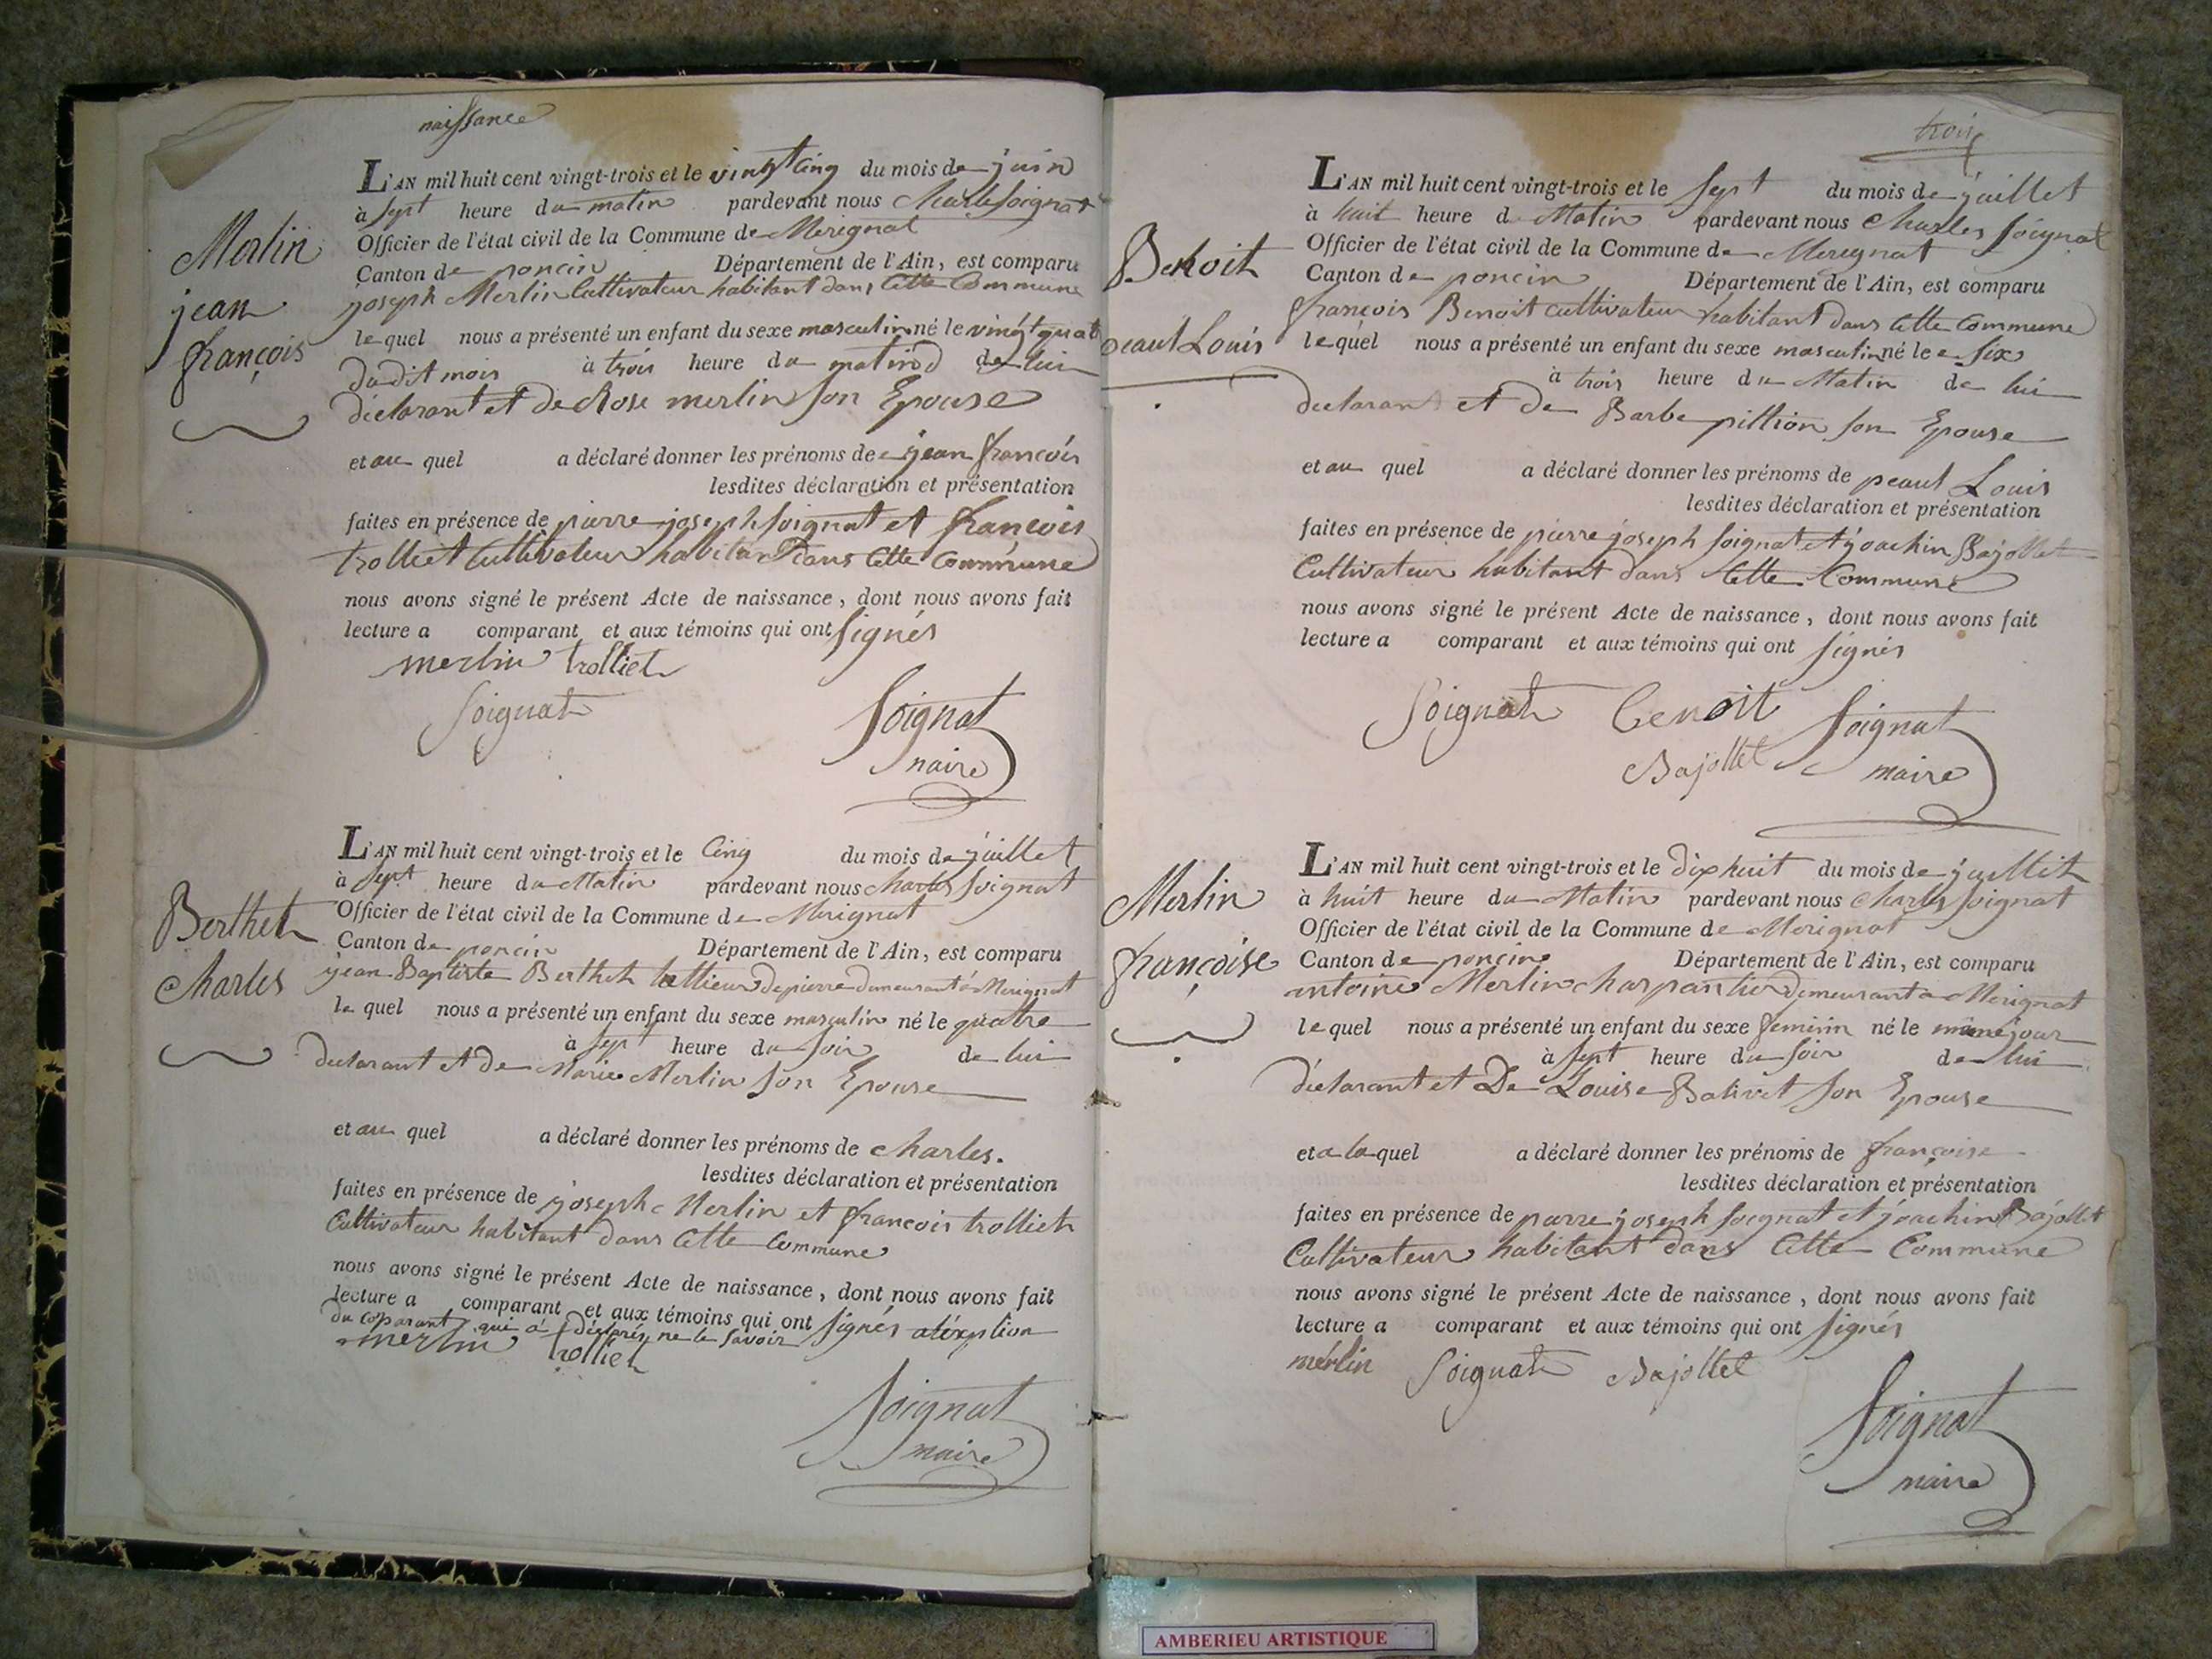 naissance
L'AN mil huit cent vingt-trois et le vingt cinq du mois de juin
à sept heure du matin pardevant nous Charles Soignat
Officier de l'état civil de la Commune de Merignat
Canton de poncin Département de l'Ain, est comparu
joseph Merlin Cultivateur habitant dans Cette Commune
le quel nous a présenté un enfant du sexe masculin né le vingt quat
du dit mois à trois heure du matin de lui
déclarant et de Rose merlin son Epouse
et au quel a déclaré donner les prénoms de jean françois
lesdites déclaration et présentation
faites en présence de pierre joseph soignat et françois
trolliet Cultivateur habitant dans Cette Commune
nous avons signé le présent Acte de naissance, dont nous avons fait
lecture a comparant et aux témoins qui ont signés
merlin trolliet
Soignat Soignat
maire
Merlin
jean
françois
L'AN mil huit cent vingt-trois et le Cinq du mois de juillet
à sept heure du Matin pardevant nous Charles Soignat
Officier de l'état civil de la Commune de Merignat
Canton de poncin Département de l'Ain, est comparu
jean Baptiste Berthet tallieur de pierre demeurant à Merignat
le quel nous a présenté un enfant du sexe masculin né le quatre
à sept heure du soir de lui
declarant et de Marie Merlin son Epouse
et au quel a déclaré donner les prénoms de Charles.
lesdites déclaration et présentation
faites en présence de joseph Merlin et françois trolliet
Cultivateur habitant dans Cette Commune
nous avons signé le présent Acte de naissance, dont nous avons fait
lecture a comparant et aux témoins qui ont signés
du coparant qui a déclaré ne le savoir
merlin trolliet
Soignat
maire
Berthet
Charles
trois
L'AN mil huit cent vingt-trois et le Sept du mois de juillet
à huit heure d Matin pardevant nous Charles Soignat
Officier de l'état civil de la Commune de Merignat
Canton de poncin Département de l'Ain, est comparu
françois Benoit cultivateur habitant dans Cette Commune
le quel nous a présenté un enfant du sexe masculin né le six
à trois heure du Matin de lui
declarant et de Barbe pittion son Epouse
et au quel a déclaré donner les prénoms de peaul Louis
lesdites déclaration et présentation
faites en présence de pierre joseph soignat et joachin Bajollet
Cultivateur habitant dans Cette Commune
nous avons signé le présent Acte de naissance, dont nous avons fait
lecture a comparant et aux témoins qui ont signés
Soignat Benoit Soignat
Bajollet maire
Benoit
peaul Louis
L'AN mil huit cent vingt-trois et le dix huit du mois de juillet
à huit heure du Matin pardevant nous Charles Soignat
Officier de l'état civil de la Commune de Merignat
Canton de poncin Département de l'Ain, est comparu
antoine Merlin charpantier demeurant a Merignat
le quel nous a présenté un enfant du sexe feminin né le même jour
à sept heure du soir de lui
déclarant et De Louise Balivet son Epouse
et a la quel a déclaré donner les prénoms de françoise
lesdites déclaration et présentation
faites en présence de pierre joseph soignat et joachin Bajollet
Cultivateur habitant dans Cette Commune
nous avons signé le présent Acte de naissance, dont nous avons fait
lecture a comparant et aux témoins qui ont signés
merlin Soignat Bajollet
Soignat
maire
Merlin
françoise
AMBERIEU ARTISTIQUE